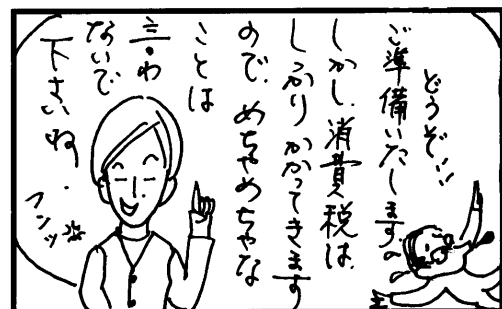 どうぞ!!
ご準備いたします。
しかし、消費税は、
しっかりかかってきます
ので、めちゃめちゃな
ことは
言わ
ないで
下さいね.
フンッ